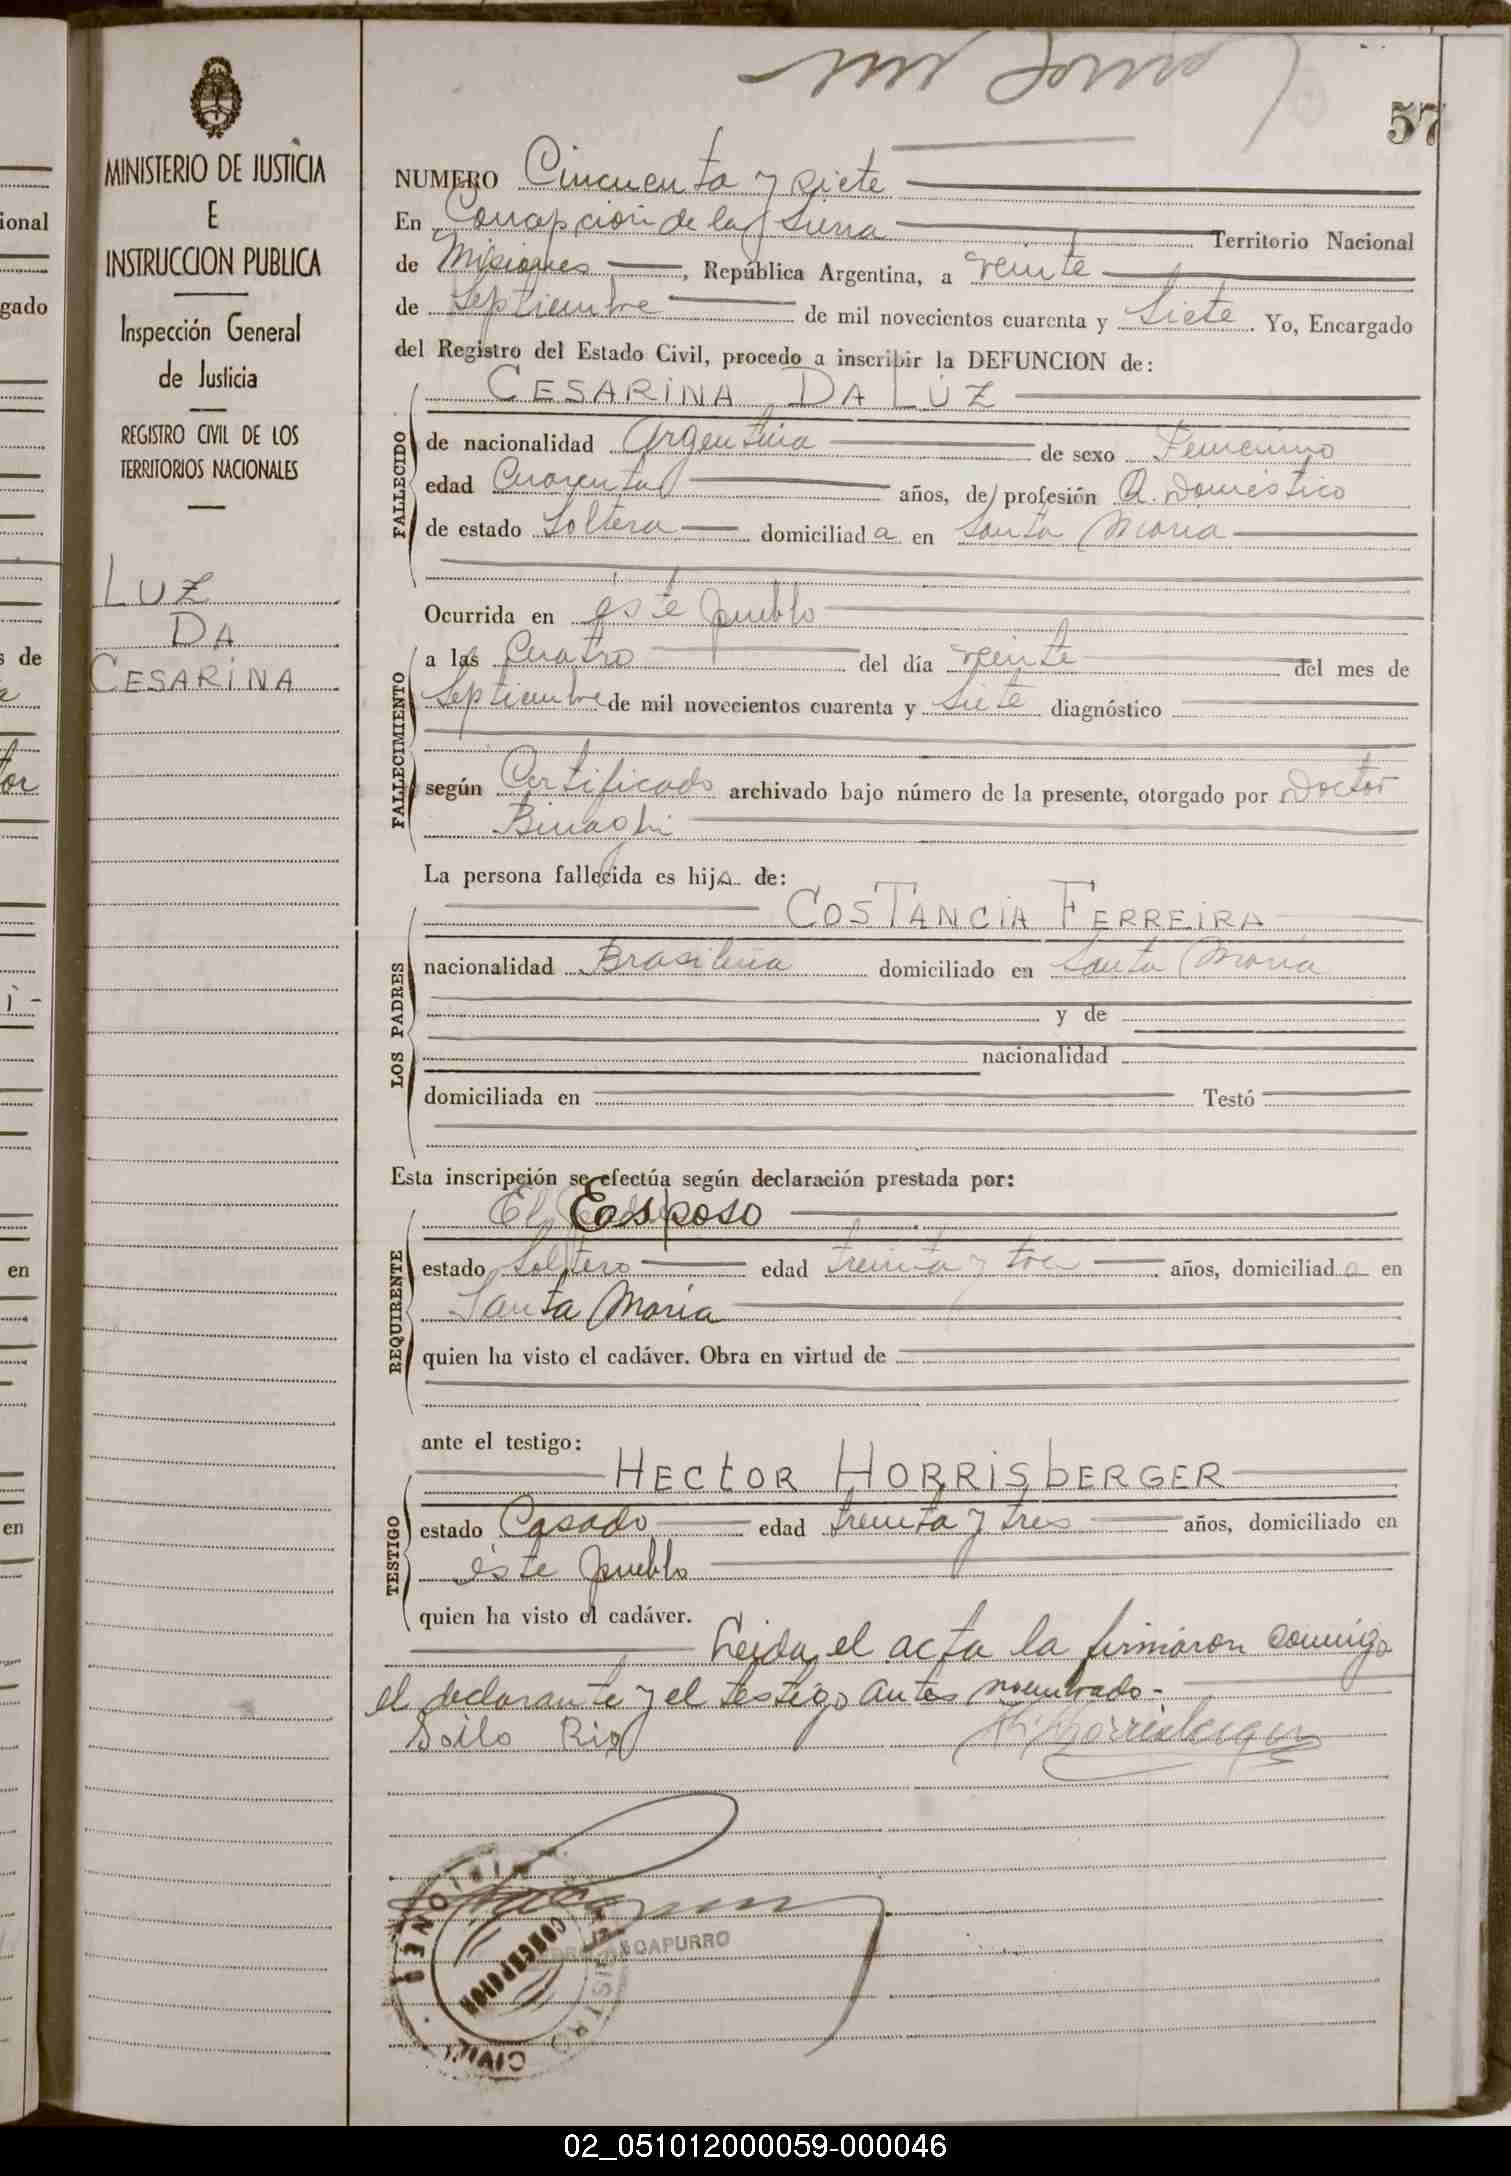 57
MINISTERIO DE JUSTICIA
E
INSTRUCCION PUBLICA
Inspección General
de Justicia
REGISTRO CIVIL DE LOS
TERRITORIOS NACIONALES
LUZ
DA
CESARINA
NUMERO Cincuenta y siete
En Concepción de la Sierra Territorio Nacional
de Misiones, República Argentina, a veinte
de Septiembre de mil novecientos cuarenta y Siete. Yo, Encargado
del Registro del Estado Civil, procedo a inscribir la DEFUNCION de:
CESARINA DA LUZ
FALLECIDO
de nacionalidad Argentina de sexo Femenino
edad Cuarenta años, de profesión Q. Doméstico
de estado Soltera domiciliada en Santa Maria
Ocurrida en éste pueblo
FALLECIMIENTO
a las Cuatro del día veinte del mes de
Septiembre de mil novecientos cuarenta y Siete diagnóstico
según Certificado archivado bajo número de la presente, otorgado por Doctor
Binaghi
La persona fallecida es hija de:
LOS PADRES
COSTANCIA FERREIRA
nacionalidad Brasileña domiciliado en Santa Maria
y de
nacionalidad
domiciliada en Testó
Esta inscripción se efectúa según declaración prestada por:
REQUIRENTE
El Esposo
estado Soltero edad treinta y tres años, domiciliado en
Santa Maria
quien ha visto el cadáver. Obra en virtud de
ante el testigo:
TESTIGO
HECTOR HORRISBERGER
estado Casado edad treinta y tres años, domiciliado en
éste pueblo
quien ha visto el cadáver.
Leida el acta la firmaron conmigo
el declarante y el testigo antes nombrado.-
Soilo Rios
CONCEPCION
CIVIL
02_051012000059-000046